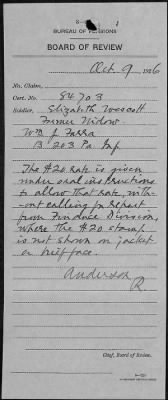 BUREAU OF PENSIONS
BOARD OF REVIEW
Oct 9, 1926
No. Claim,
Cert. No. 84703
Soldier, Elizabeth Wescott
Former Widow
Wm J Farra
B 203 Pa Inf
The $20 rate is given
under oral instructions
to allow that rate, with-
out calling for report
from Finance Division,
where the $20 stamp
is not shown on jacket
or brief face.
Anderson
R.
Chief, Board of Review.